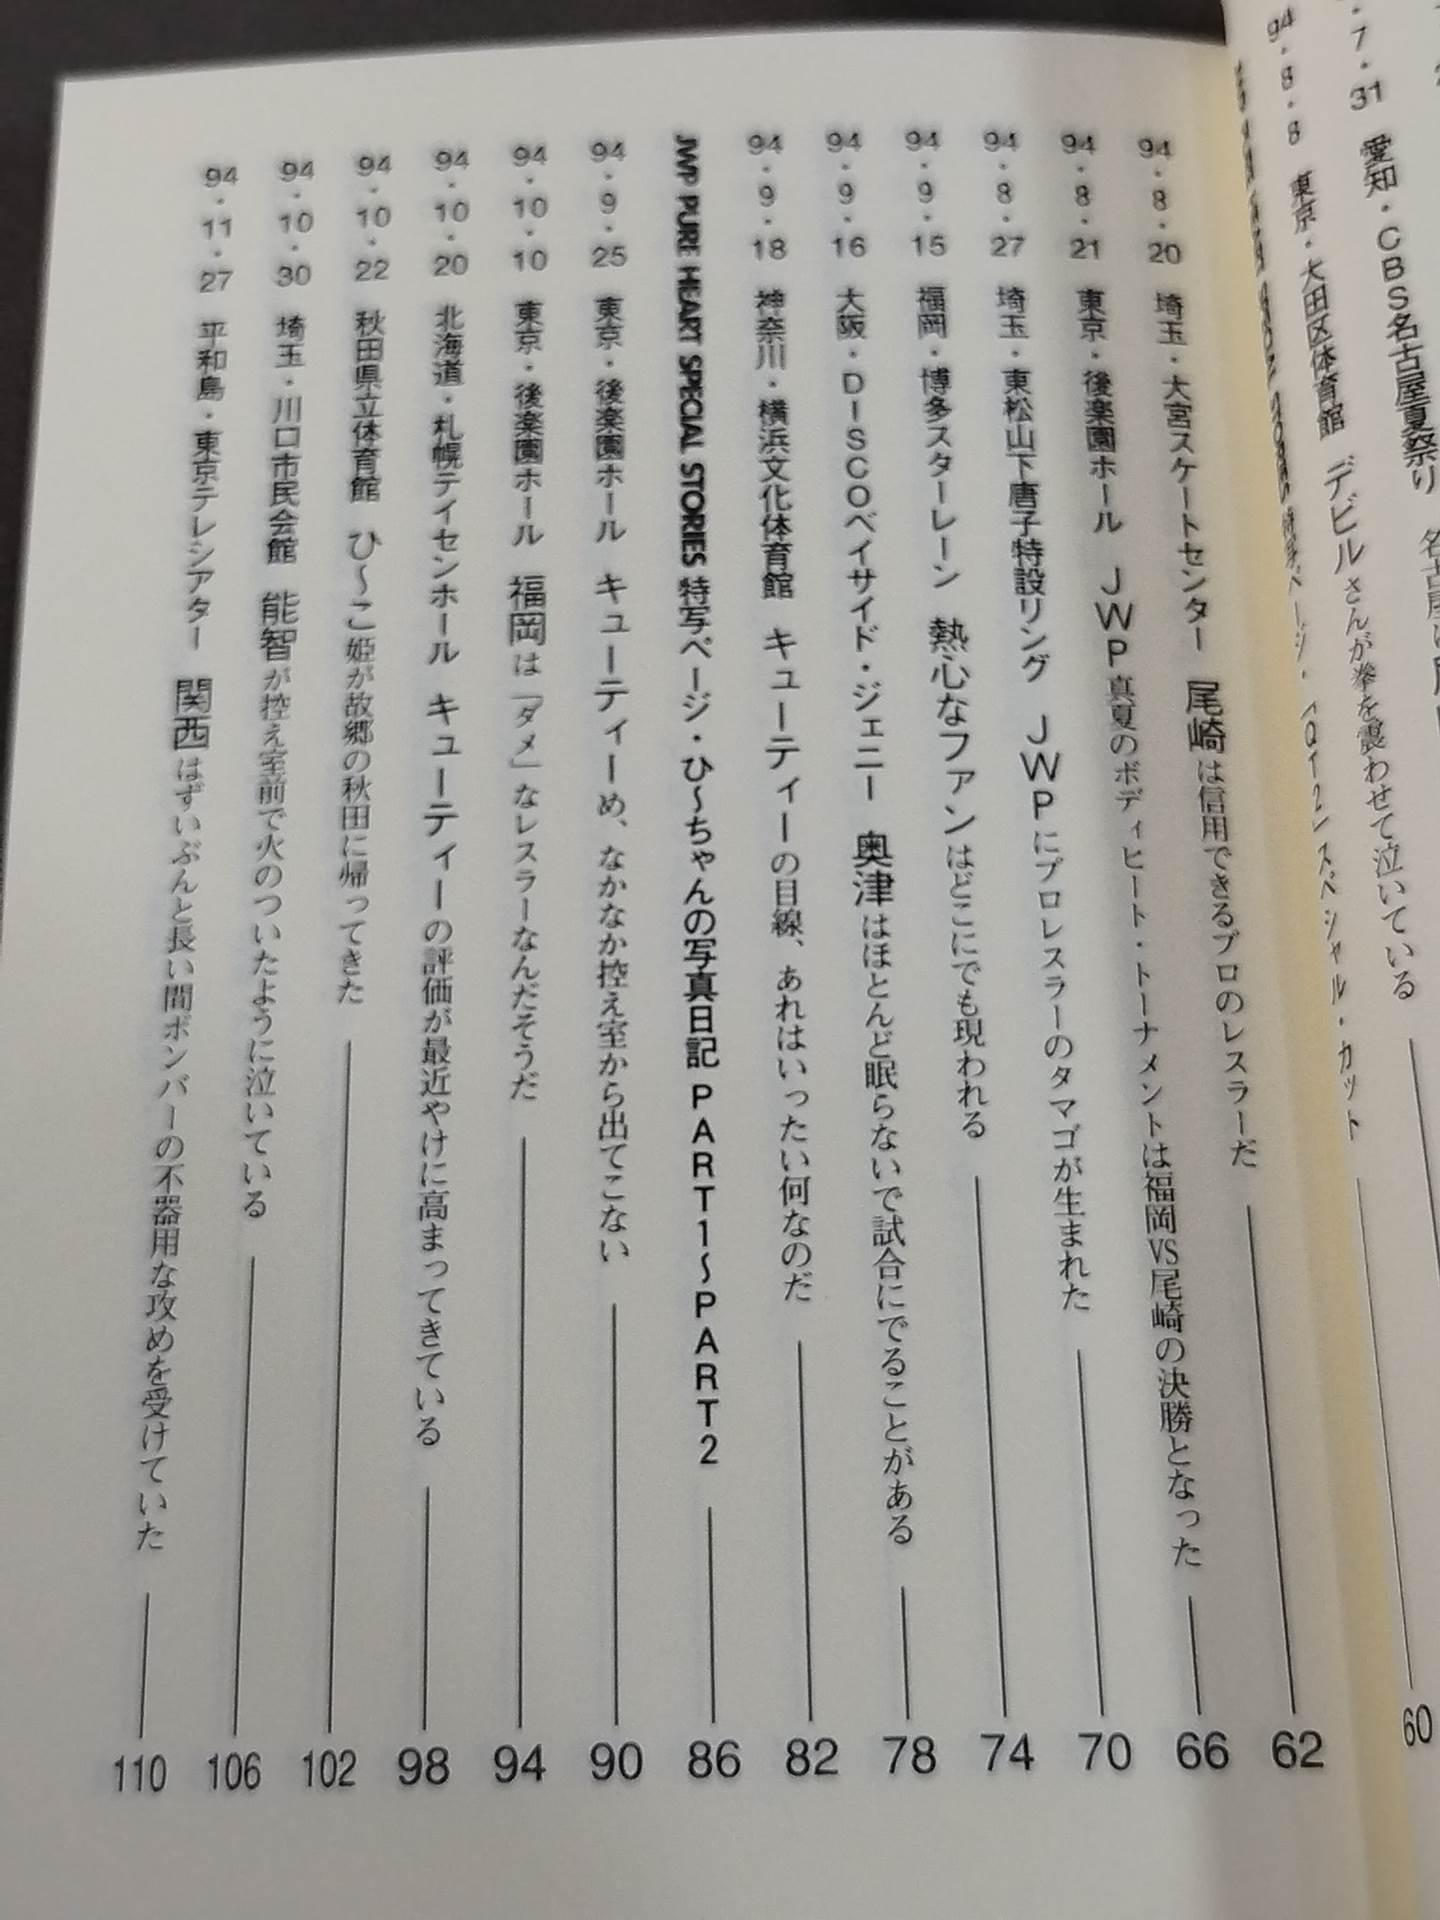 7・31 愛知・CBS名古屋夏祭り
60
94・8・8 東京・大田区体育館 デビルさんが拳を震わせて泣いている
94・8・20 埼玉・大宮スケートセンター 尾崎は信用できるプロのレスラーだ 62
94・8・21 東京・後楽園ホール JWP真夏のボディヒート・トーナメントは福岡VS尾崎の決勝となった 66
94・8・27 埼玉・東松山下唐子特設リング JWPにプロレスラーのタマゴが生まれた 70
94・9・15 福岡・博多スターレーン 熱心なファンはどこにでも現われる 74
94・9・16 大阪・DISCOベイサイド・ジェニー 奥津はほとんど眠らないで試合にでることがある 78
94・9・18 神奈川・横浜文化体育館 キューティーの目線、あれはいったい何なのだ 82
JWP PURE HEART SPECIAL STORIES 特写ページ・ひ〜ちゃんの写真日記 PART1〜PART2 86
94・9・25 東京・後楽園ホール キューティーめ、なかなか控え室から出てこない 90
94・10・10 東京・後楽園ホール 福岡は「ダメ」なレスラーなんだそうだ 94
94・10・20 北海道・札幌テイセンホール キューティーの評価が最近やけに高まってきている 98
94・10・22 秋田県立体育館 ひ〜こ姫が故郷の秋田に帰ってきた 102
94・10・30 埼玉・川口市民会館 能智が控え室前で火のついたように泣いている 106
94・11・27 平和島・東京テレシアター 関西はずいぶんと長い間ボンバーの不器用な攻めを受けていた 110